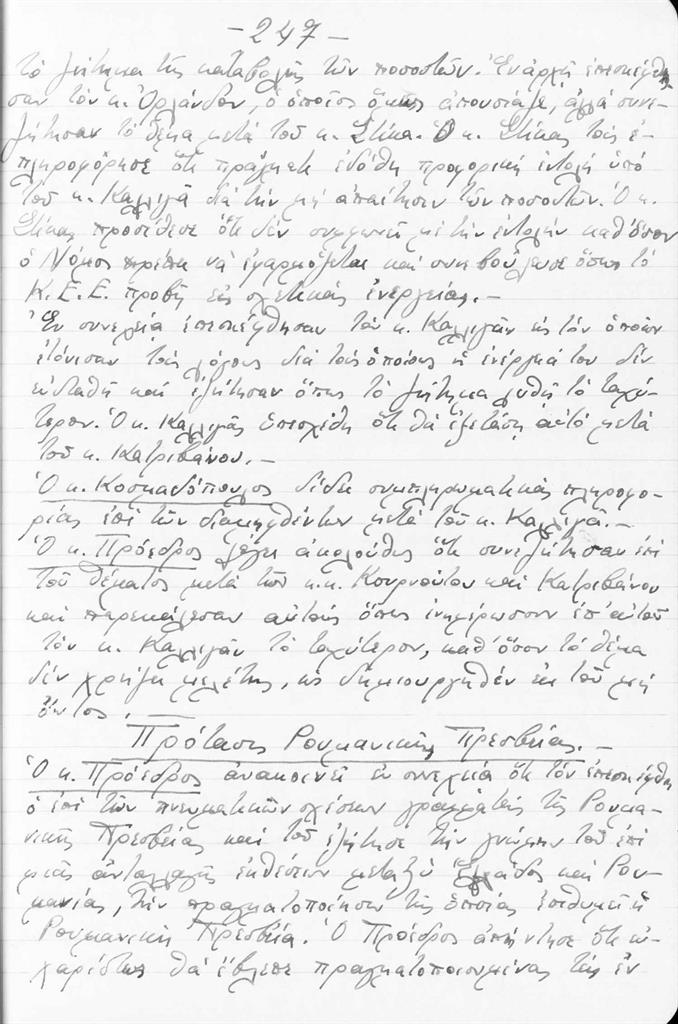 - 247 -
τὸ ζήτημα τῆς καταβολῆς τῶν ποσοστῶν. Ἐν ἀρχῇ ἐπεσκέφθη-
σαν τὸν κ. Ὀρλάνδον, ὁ ὁποῖος ὅμως ἀπουσίαζε, ἀλλὰ συνε-
ζήτησαν τὸ θέμα μετὰ τοῦ κ. Στίκα. Ὁ κ. Στίκας τοὺς ἐ-
πληροφόρησε ὅτι πράγματι ἐδόθη προφορικὴ ἐντολὴ ὑπὸ
τοῦ κ. Καλλιγᾶ διὰ τὴν μὴ ἀπαίτησιν τῶν ποσοστῶν. Ὁ κ.
Στίκας προσέθεσε ὅτι δὲν συμφωνεῖ μὲ τὴν ἐντολὴν καθ' ὅσον
ὁ Νόμος πρέπει νὰ ἐφαρμόζεται καὶ συνεβούλευσε ὅπως τὸ
Κ.Ε.Ε. προβῇ εἰς σχετικὰς ἐνεργείας.-
Ἐν συνεχείᾳ ἐπεσκέφθησαν τὸν κ. Καλλιγᾶν εἰς τὸν ὁποῖον
ἐτόνισαν τοὺς λόγους διὰ τοὺς ὁποίους ἡ ἐνέργειά του δὲν
εὐσταθῆ καὶ ἐζήτησαν ὅπως τὸ ζήτημα λυθῇ τὸ ταχύ-
τερον. Ὁ κ. Καλλιγᾶς ὑπεσχέθη ὅτι θὰ ἐξετάσῃ αὐτὸ μετὰ
τοῦ κ. Κατριβάνου.-
Ὁ κ. Κοσμαδόπουλος δίδει συμπληρωματικὰς πληροφο-
ρίας ἐπὶ τῶν διαμειφθέντων μετὰ τοῦ κ. Καλλιγᾶ.-
Ὁ κ. Πρόεδρος λέγει ἀκολούθως ὅτι συνεζήτησαν ἐπὶ
τοῦ θέματος μετὰ τῶν κ.κ. Κουρνούτου καὶ Κατριβάνου
καὶ παρεκάλεσαν αὐτοὺς ὅπως ἐνημερώσουν ἐπ' αὐτοῦ
τὸν κ. Καλλιγᾶν τὸ ταχύτερον, καθ' ὅσον τὸ θέμα
δὲν χρήζει μελέτης, ὡς δημιουργηθὲν ἐκ τοῦ μὴ
ὄντος.-
Πρότασις Ρουμανικῆς Πρεσβείας.-
Ὁ κ. Πρόεδρος ἀνακοινεῖ ἐν συνεχείᾳ ὅτι τὸν ἐπεσκέφθη
ὁ ἐπὶ τῶν πνευματικῶν σχέσεων γραμματεὺς τῆς Ρουμα-
νικῆς Πρεσβείας καὶ τοῦ ἐζήτησε τὴν γνώμην του ἐπὶ
μιᾶς ἀνταλλαγῆς ἐκθέσεων μεταξὺ Ἑλλάδος καὶ Ρου-
μανίας, τὴν πραγματοποίησιν τῆς ὁποίας ἐπιθυμεῖ ἡ
Ρουμανικὴ Πρεσβεία. Ὁ Πρόεδρος ἀπήντησε ὅτι εὐ-
χαρίστως θὰ ἔβλεπε πραγματοποιουμένας τὰς ἐν